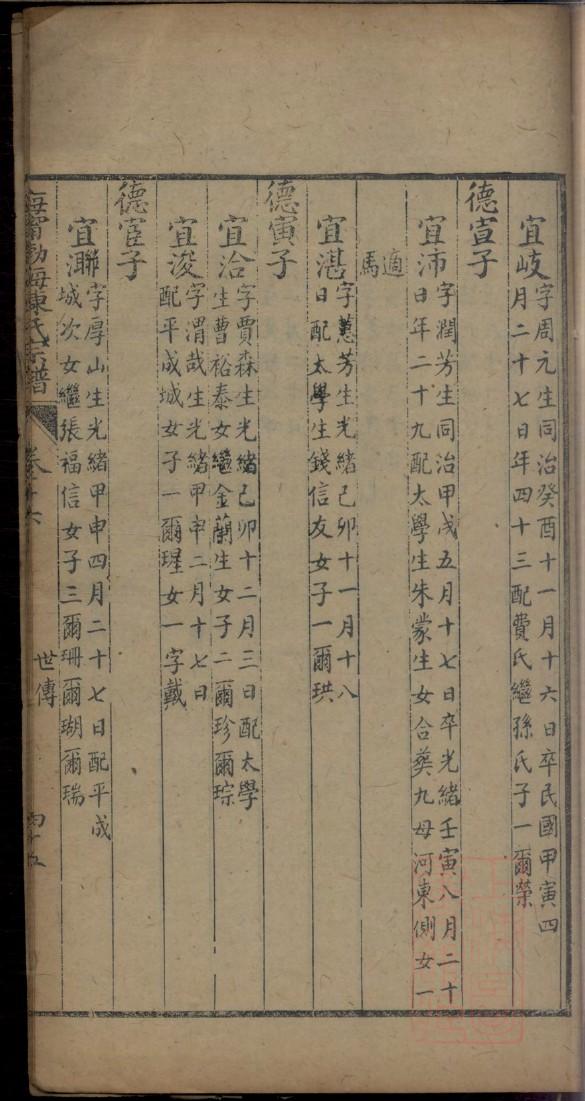 宜岐字周元生同治癸酉十一月十六日卒民國甲寅四
月二十七日年四十三配費氏繼孫氏子一爾榮
德宣子
宜沛字潤芳生同治甲戌五月十七日卒光緒壬寅八月二十
日年二十九配太學生朱蒙生女合葬九母河東側女一
適
馬
宜湛字蕙芳生光緒己卯十一月十八
日配太學生錢信友女子一爾珙
德寅子
宜洽字賈森生光緒己卯十二月三日配太學
生曹裕泰女繼金蘭生女子二爾珍爾琮
宜浚字渭哉生光緒甲申二月十七日
配平成城女子一爾瑆女一字戴
德宦子
宜字厚山生光緒甲申四月二十七日配平成
城次女繼張福信女子三爾珊爾瑚爾瑞
海甯渤海陳氏宗譜
世傳
四十五